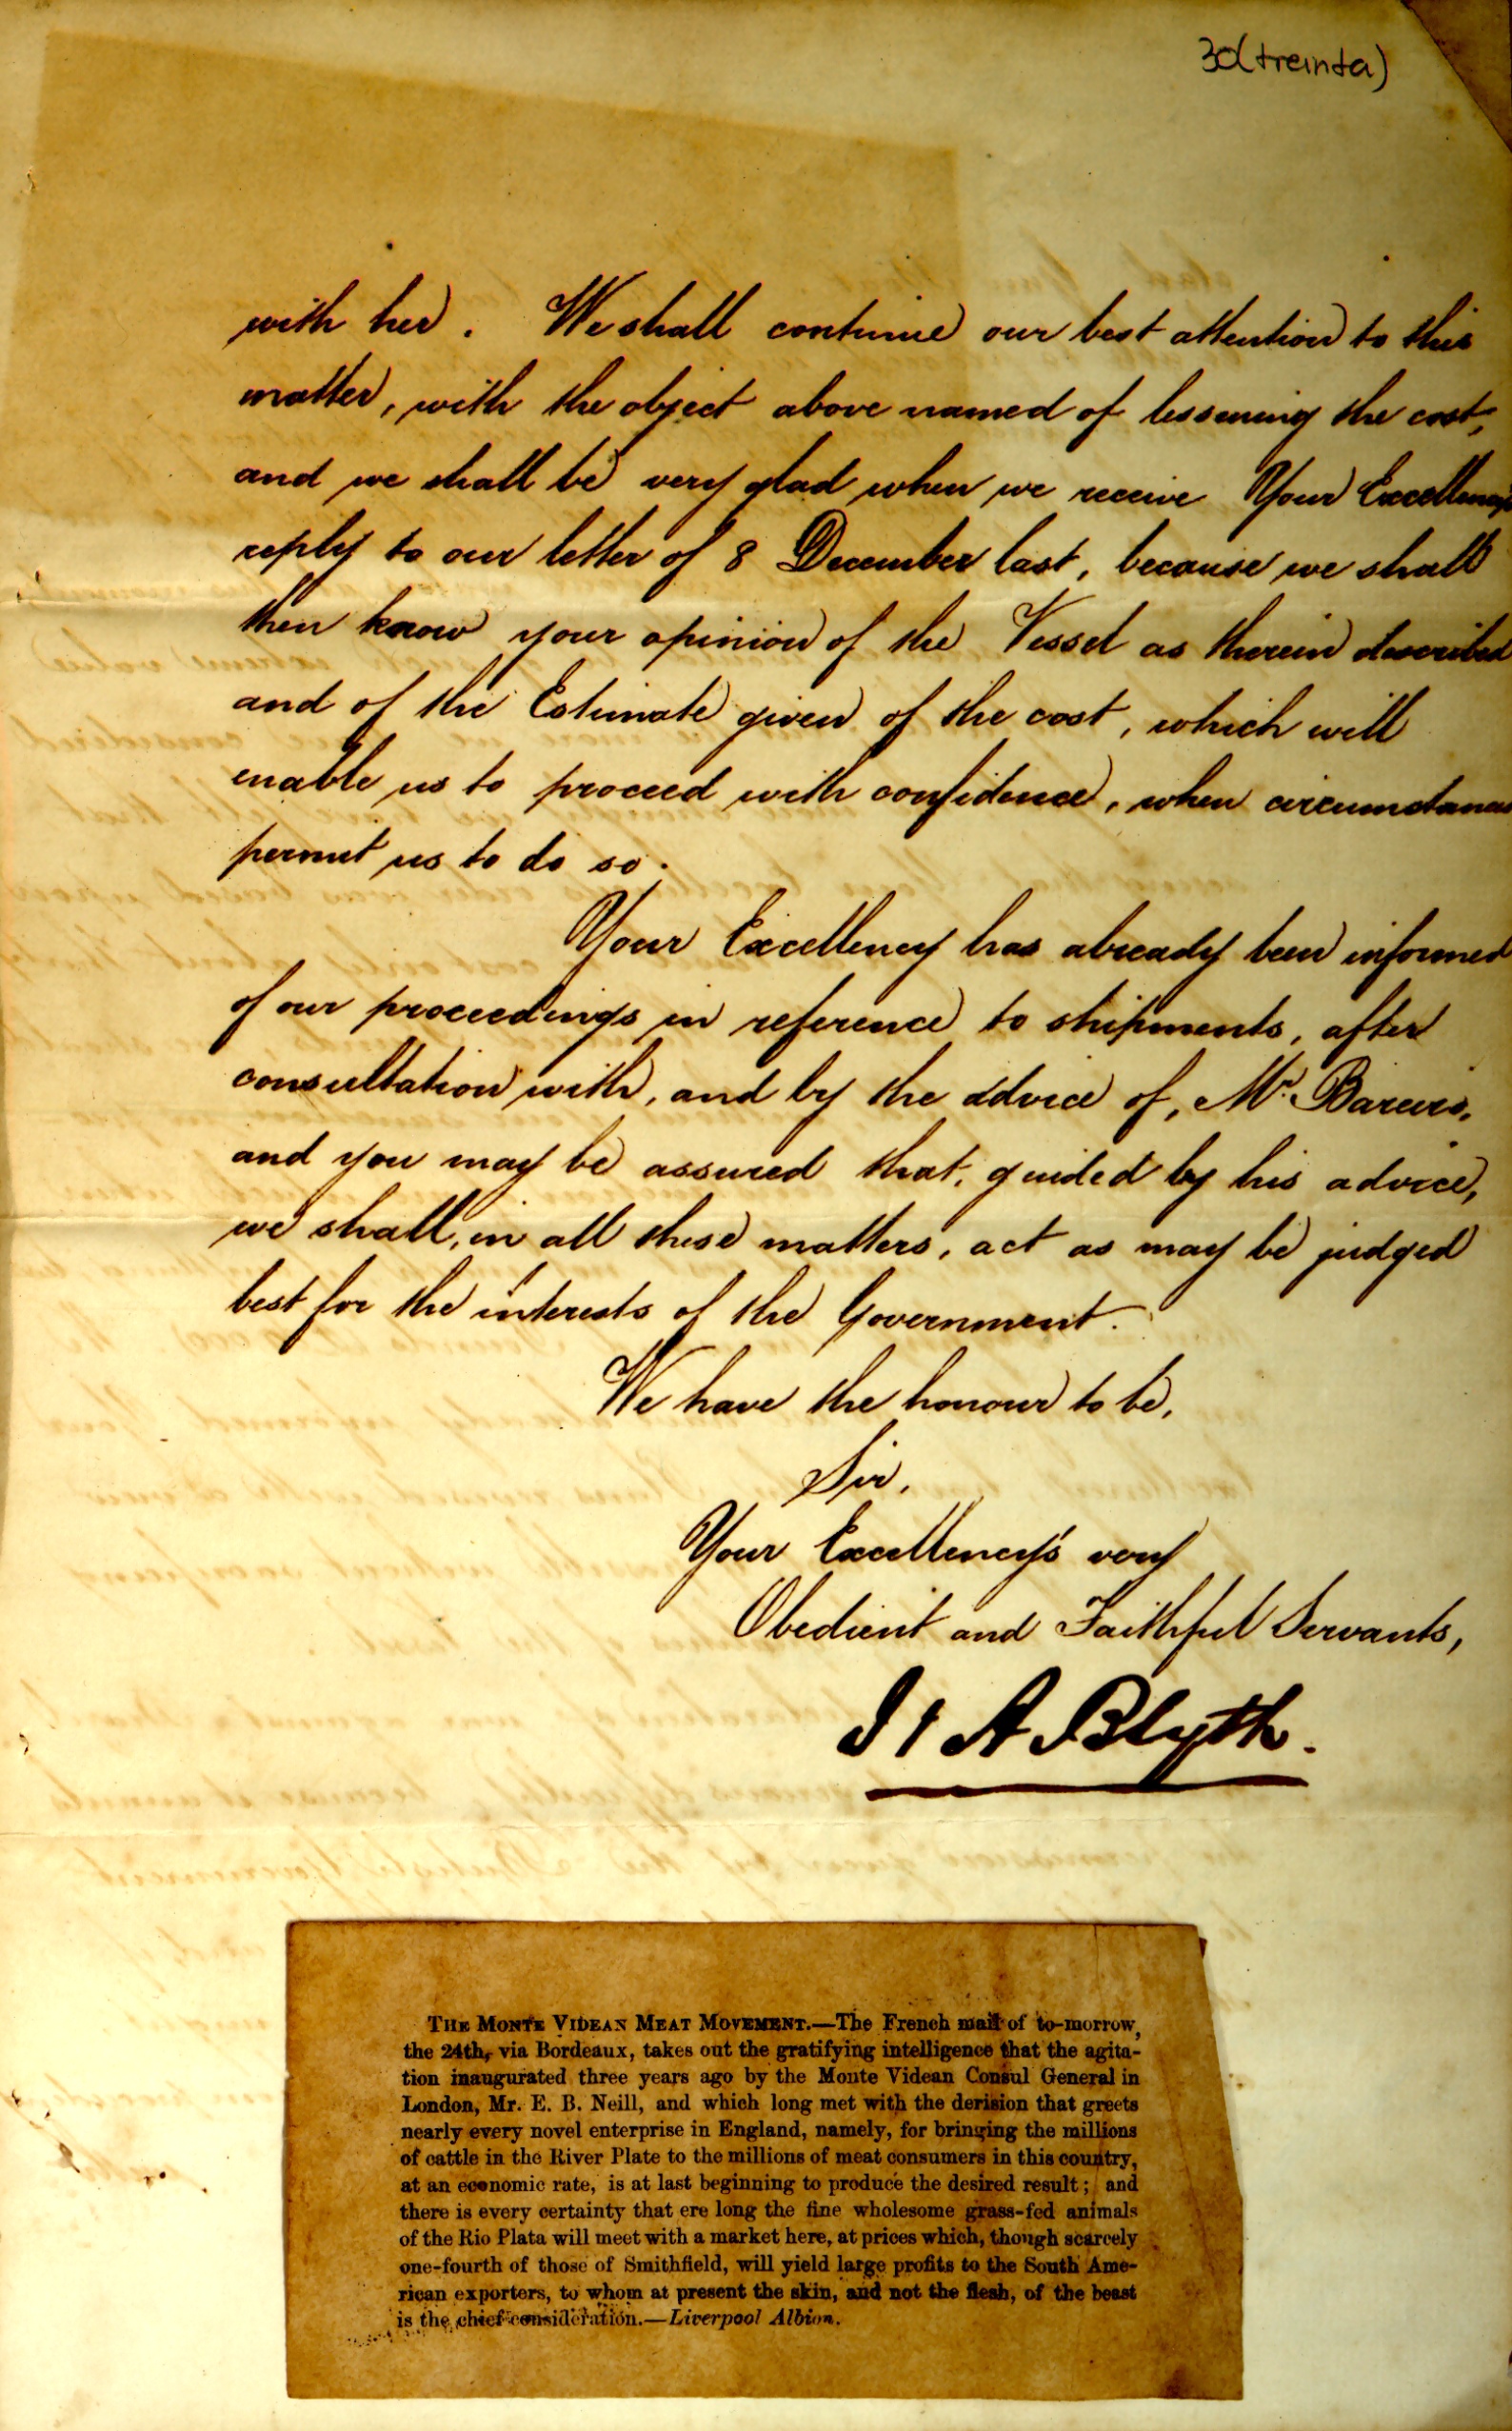 30(treinta)
with her. We shall continue our best attention to this
matter, with the object above named of lessening the cost,
and we shall be very glad when we receive Your Excellency's
reply to our letter of 8 December last, because we shall
then know your opinion of the Vessel as therein described
and of the Estimate given of the cost, which will
enable us to proceed with confidence, when circumstances
permit us to do so.
Your Excellency has already been informed
of our proceedings in reference to shipments, after
consultation with, and by the advice of, Mr. Bareiro,
and you may be assured that, guided by his advice,
we shall, in all these matters, act as may be judged
best for the interests of the Government.
We have the honour to be,
Sir,
Your Excellency's very
Obedient and Faithful Servants,
J & A Blyth.
THE MONTE VIDEAN MEAT MOVEMENT.—The French mail of to-morrow,
the 24th, via Bordeaux, takes out the gratifying intelligence that the agita-
tion inaugurated three years ago by the Monte Videan Consul General in
London, Mr. E. B. Neill, and which long met with the derision that greets
nearly every novel enterprise in England, namely, for bringing the millions
of cattle in the River Plate to the millions of meat consumers in this country,
at an economic rate, is at last beginning to produce the desired result; and
there is every certainty that ere long the fine wholesome grass-fed animals
of the Rio Plata will meet with a market here, at prices which, though scarcely
one-fourth of those of Smithfield, will yield large profits to the South Ame-
rican exporters, to whom at present the skin, and not the flesh, of the beast
is the chief consideration.—Liverpool Albion.